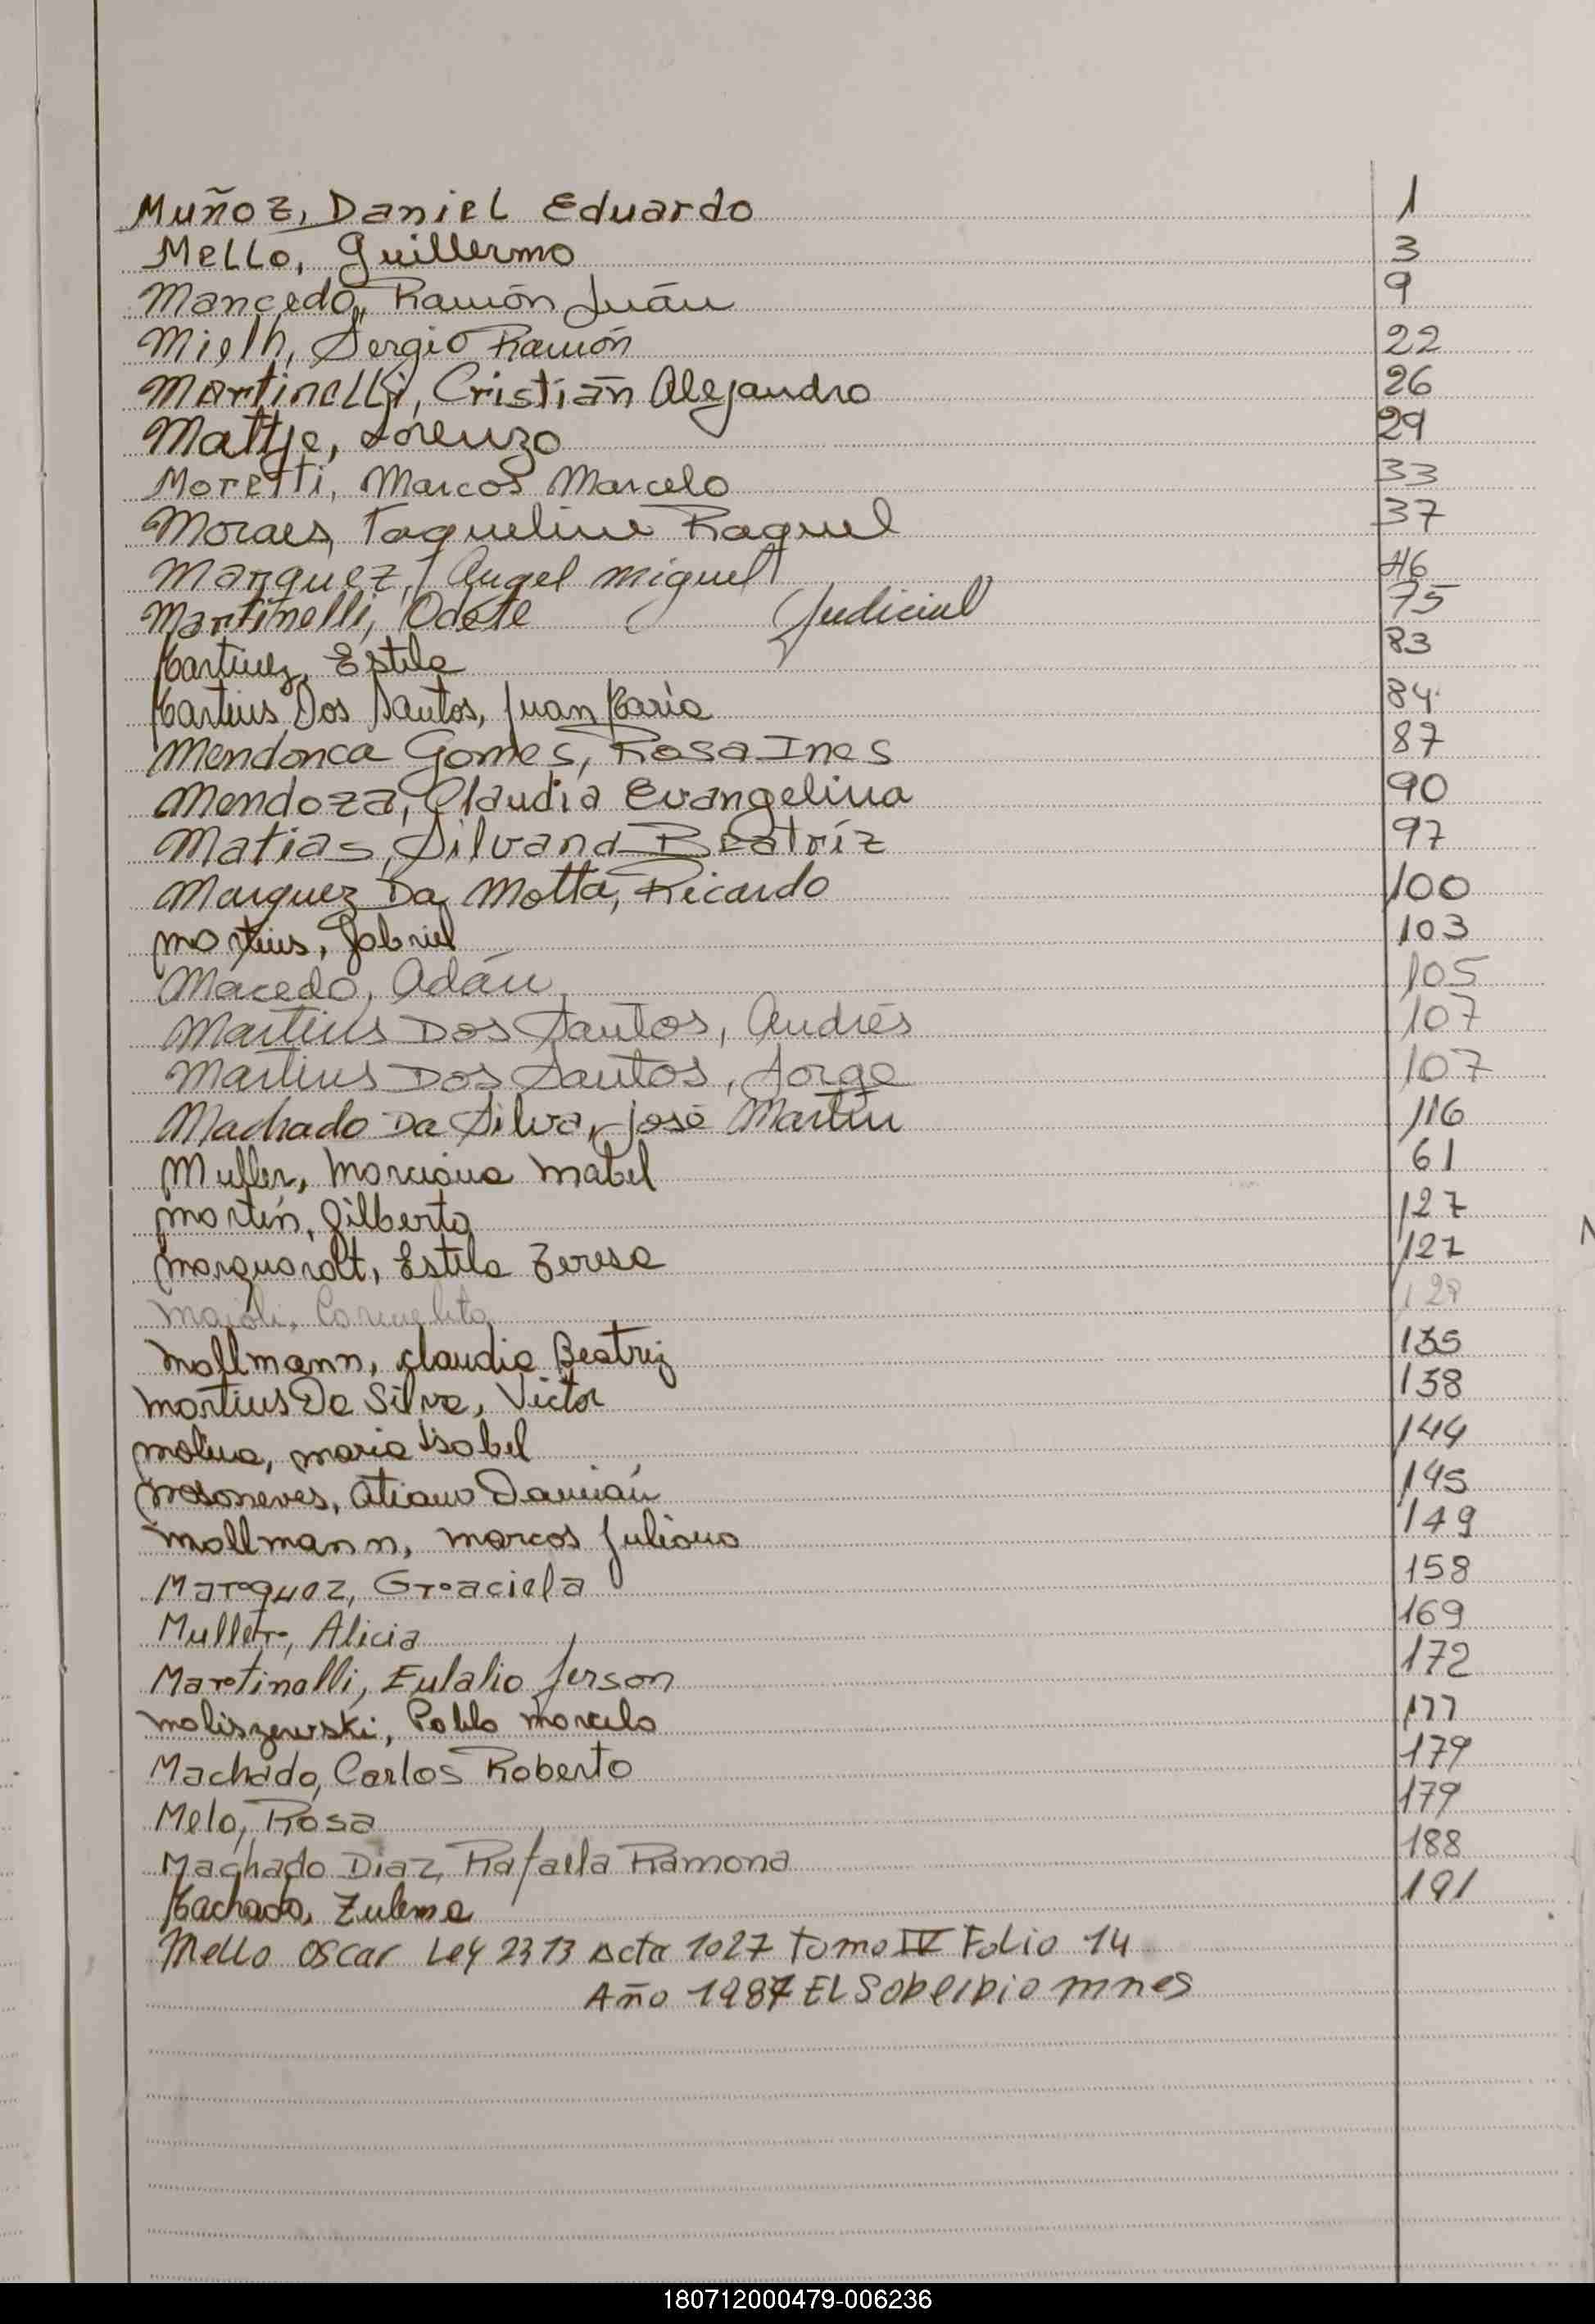 Muñoz, Daniel Eduardo 1
Mello, Guillermo 3
Mancedo, Ramón Juán 9
Mielh, Sergio Ramón 22
Martinelli, Cristián Alejandro 26
Mattje, Lorenzo 29
Moretti, Marcos Marcelo 33
Moraes, Jaqueline Raquel 37
Marquez, Angel Miguel 46
Martinelli, Odete Judicial 75
Martinez, Estela 83
Martins Dos Santos, Juan María 84
Mendonca Gomes, Rosa Ines 87
Mendoza, Claudia Evangelina 90
Matias, Silvana Beatríz 97
Marquez Da Motta, Ricardo 100
Martins, Gabriel 103
Macedo, Adán 105
Martins Dos Santos, Andrés 107
Martins Dos Santos, Jorge 107
Machado Da Silva, José Martín 116
Muller, Marciana Mabel 61
Martín, Gilberto 127
Marquardt, Estela Teresa 127
Majoli, Carmelita 129
Mallmann, Claudia Beatriz 135
Martins Da Silva, Victor 138
Molina, María Isabel 144
Damián 145
Mallmann, Marcos Juliano 149
Marquez, Graciela 158
Muller, Alicia 169
Martinelli, Eulalio Jerson 172
Maliszewski, Pablo Marcelo 177
Machado, Carlos Roberto 179
Melo, Rosa 179
Machado Diaz, Rafaela Ramona 188
Machado, Zulema 191
Mello Oscar Ley 2313 Acta 1027 Tomo IV Folio 14
Año 1987 El Soberbio mnes
180712000479-006236